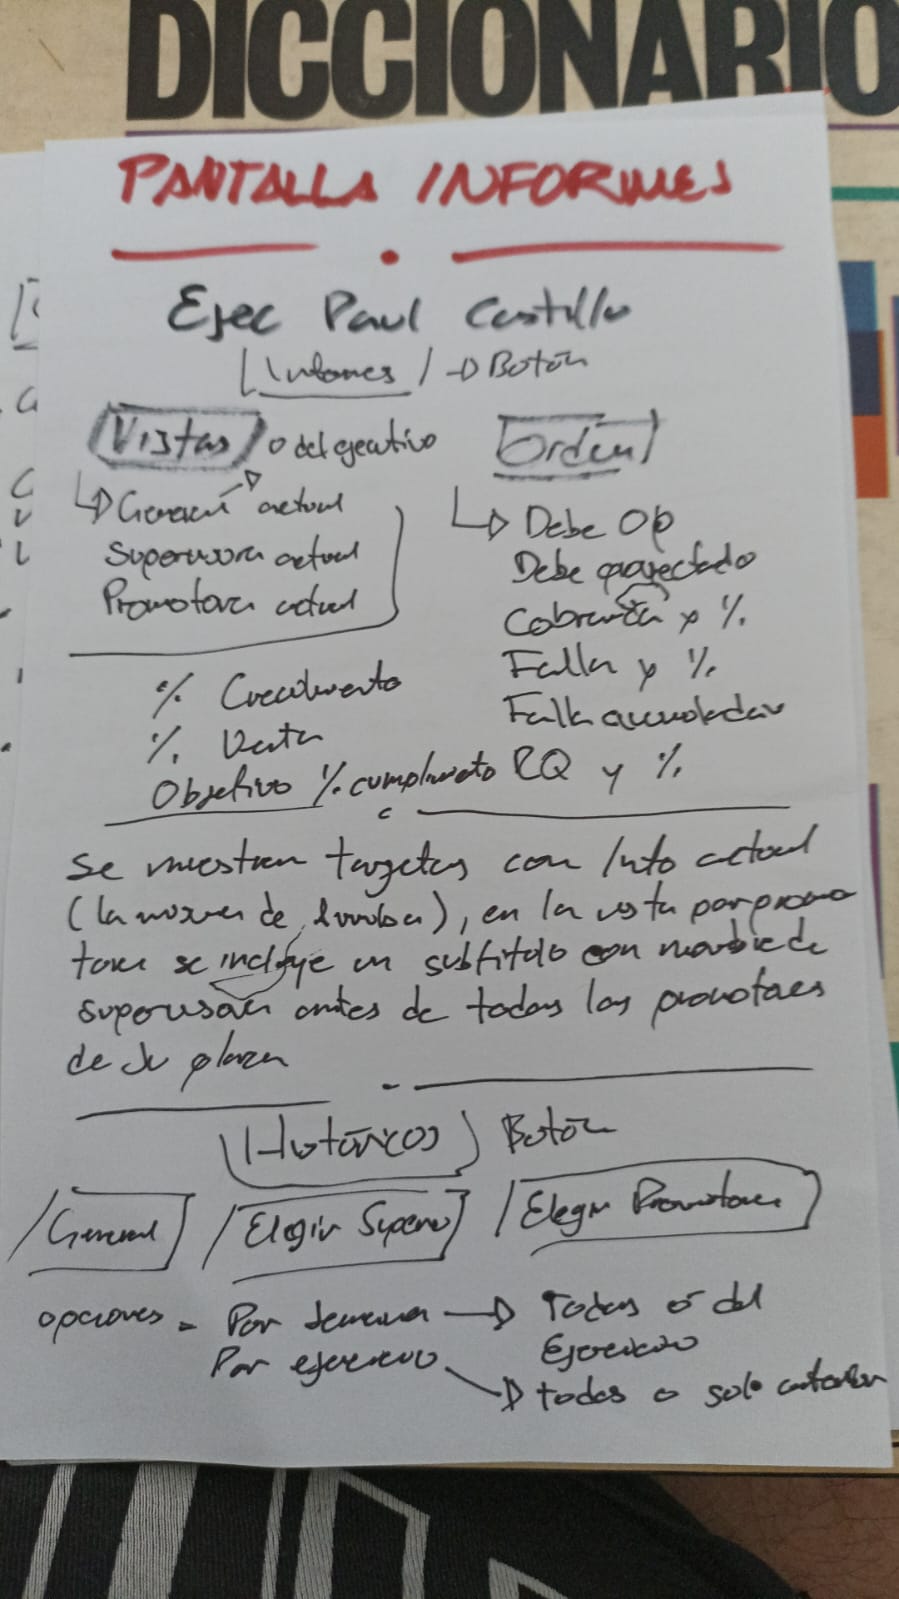 DICCIONARIO
PANTALLA INFORMES
Ejec Paul Castillo
Informes → Botón
Vistas o del ejecutivo
Orden
→ Gerencia actual
→ Debe Op
Supervisora actual
Debe proyectado
Promotora actual
Cobranza y %
Falla y %
% Crecimiento
Falla acumulada
% Venta
Objetivo % cumplimiento RQ y %
Se muestran targetas con Info actual
(la misma de), en la vista por promo
tora se incluye un subtitulo con nombre de
supervisora antes de todas las promotoras
de su plaza
Históricos Botón
General Elegir Superv Elegir Promotora
opciones = Por semana → Todas o del
Por ejercicio Ejercicio
→ todos o solo anterior